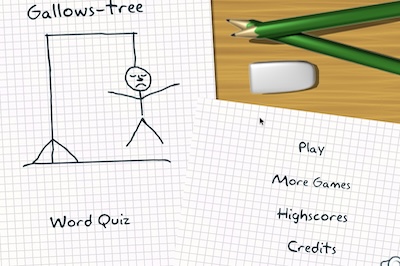 Gallows-tree
Word Quiz
Play
More Games
Highscores
Credits